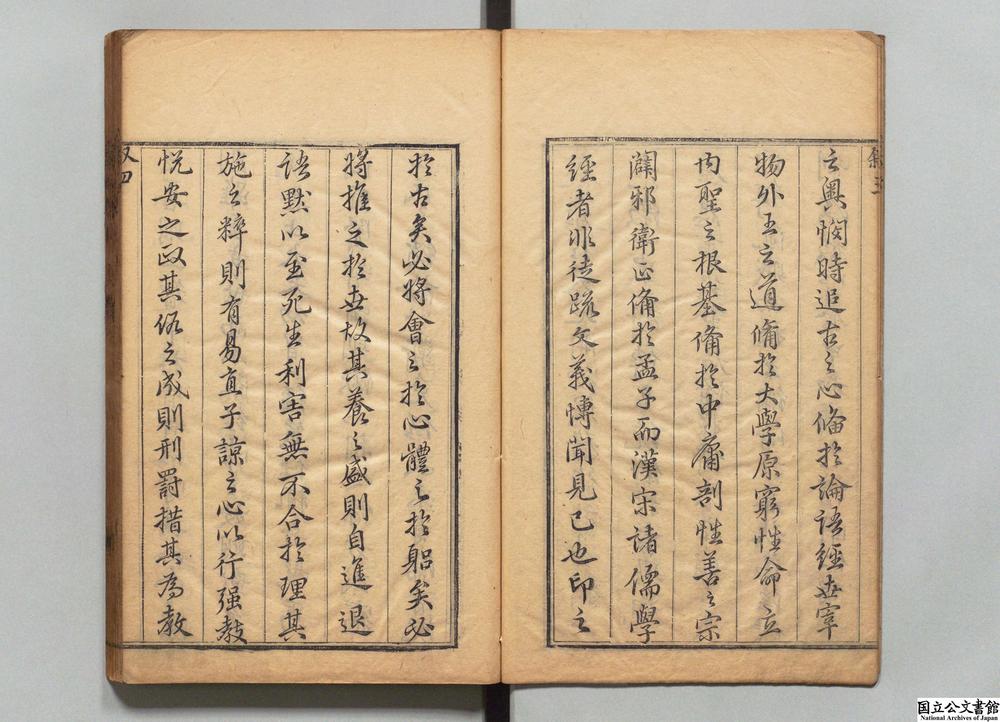 之奧憫時追古之心備於論語經世宰
物外王之道備於大學原窮性命立
內聖之根基備於中庸剖性善之宗
闢邪衛正備於孟子而漢宋諸儒學
經者非徒疏文義博聞見已也印之
於古矣必將會之於心體之於躬矣必
將推之於世故其養之盛則自進退
語默以至死生利害無不合於理其
施之粹則有易直子諒之心以行强教
悅安之政其俗之成則刑罰措其為教
叙四
国立公文書館
National Archives of Japan